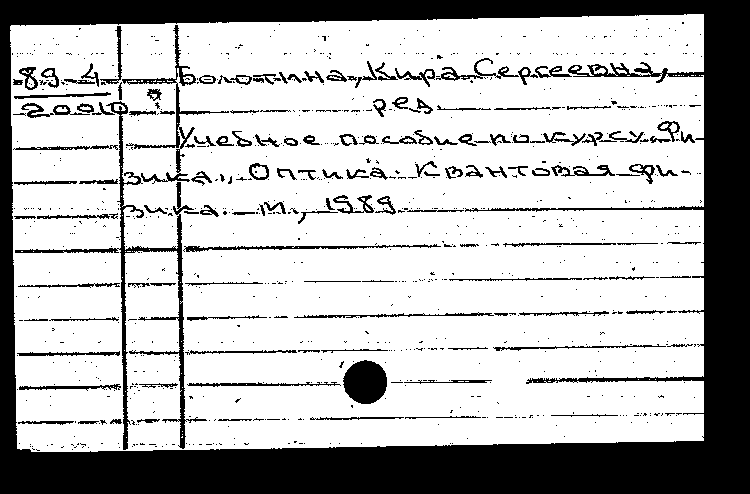 89-4 Болотина, Кира Сергеевна,
20010 ред.
Учебное пособие по курсу „Фи-
зика„, Оптика. Квантовая фи-
зика. – М., 1989